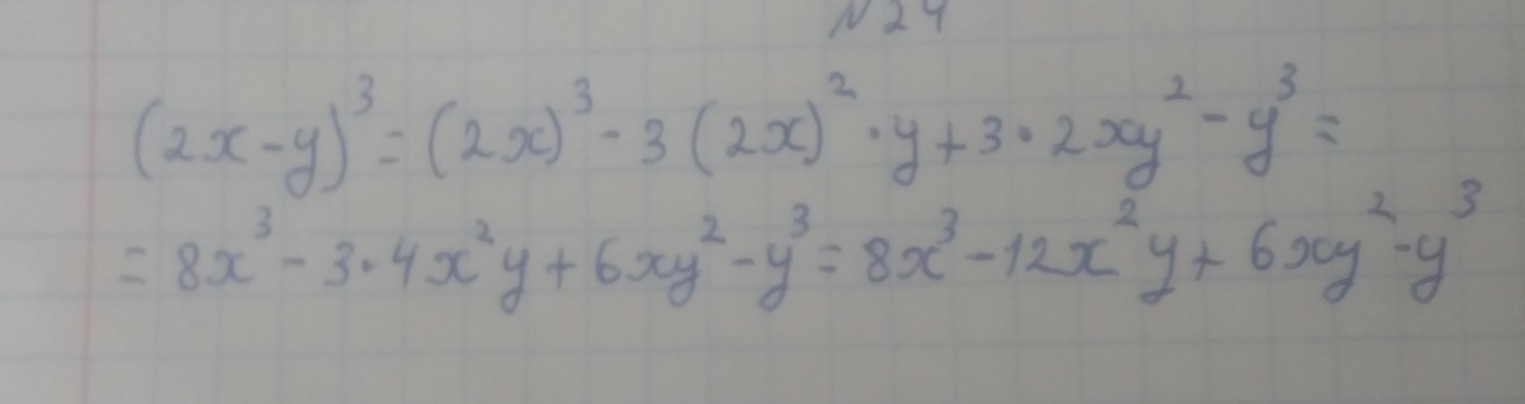 №24
(2x-y)³=(2x)³-3(2x)²·y+3·2xy²-y³=
=8x³-3·4x²y+6xy²-y³=8x³-12x²y+6xy²-y³